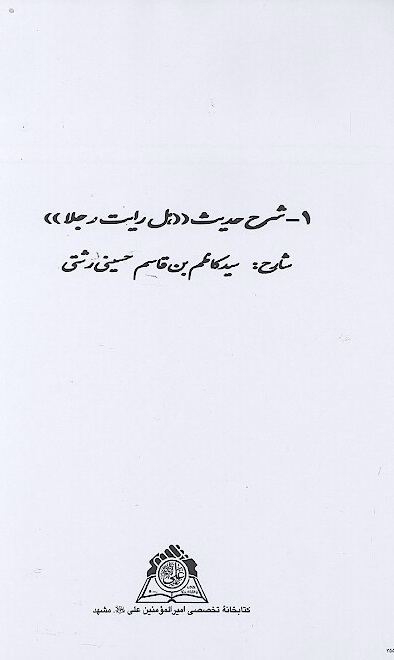 ۱- شرح حدیث ((هل رایت رجلا))
شارح: سید کاظم بن قاسم حسینی رشتی
علی
کتابخانهٔ تخصصی امیرالمؤمنین علی ﷺ مشهد